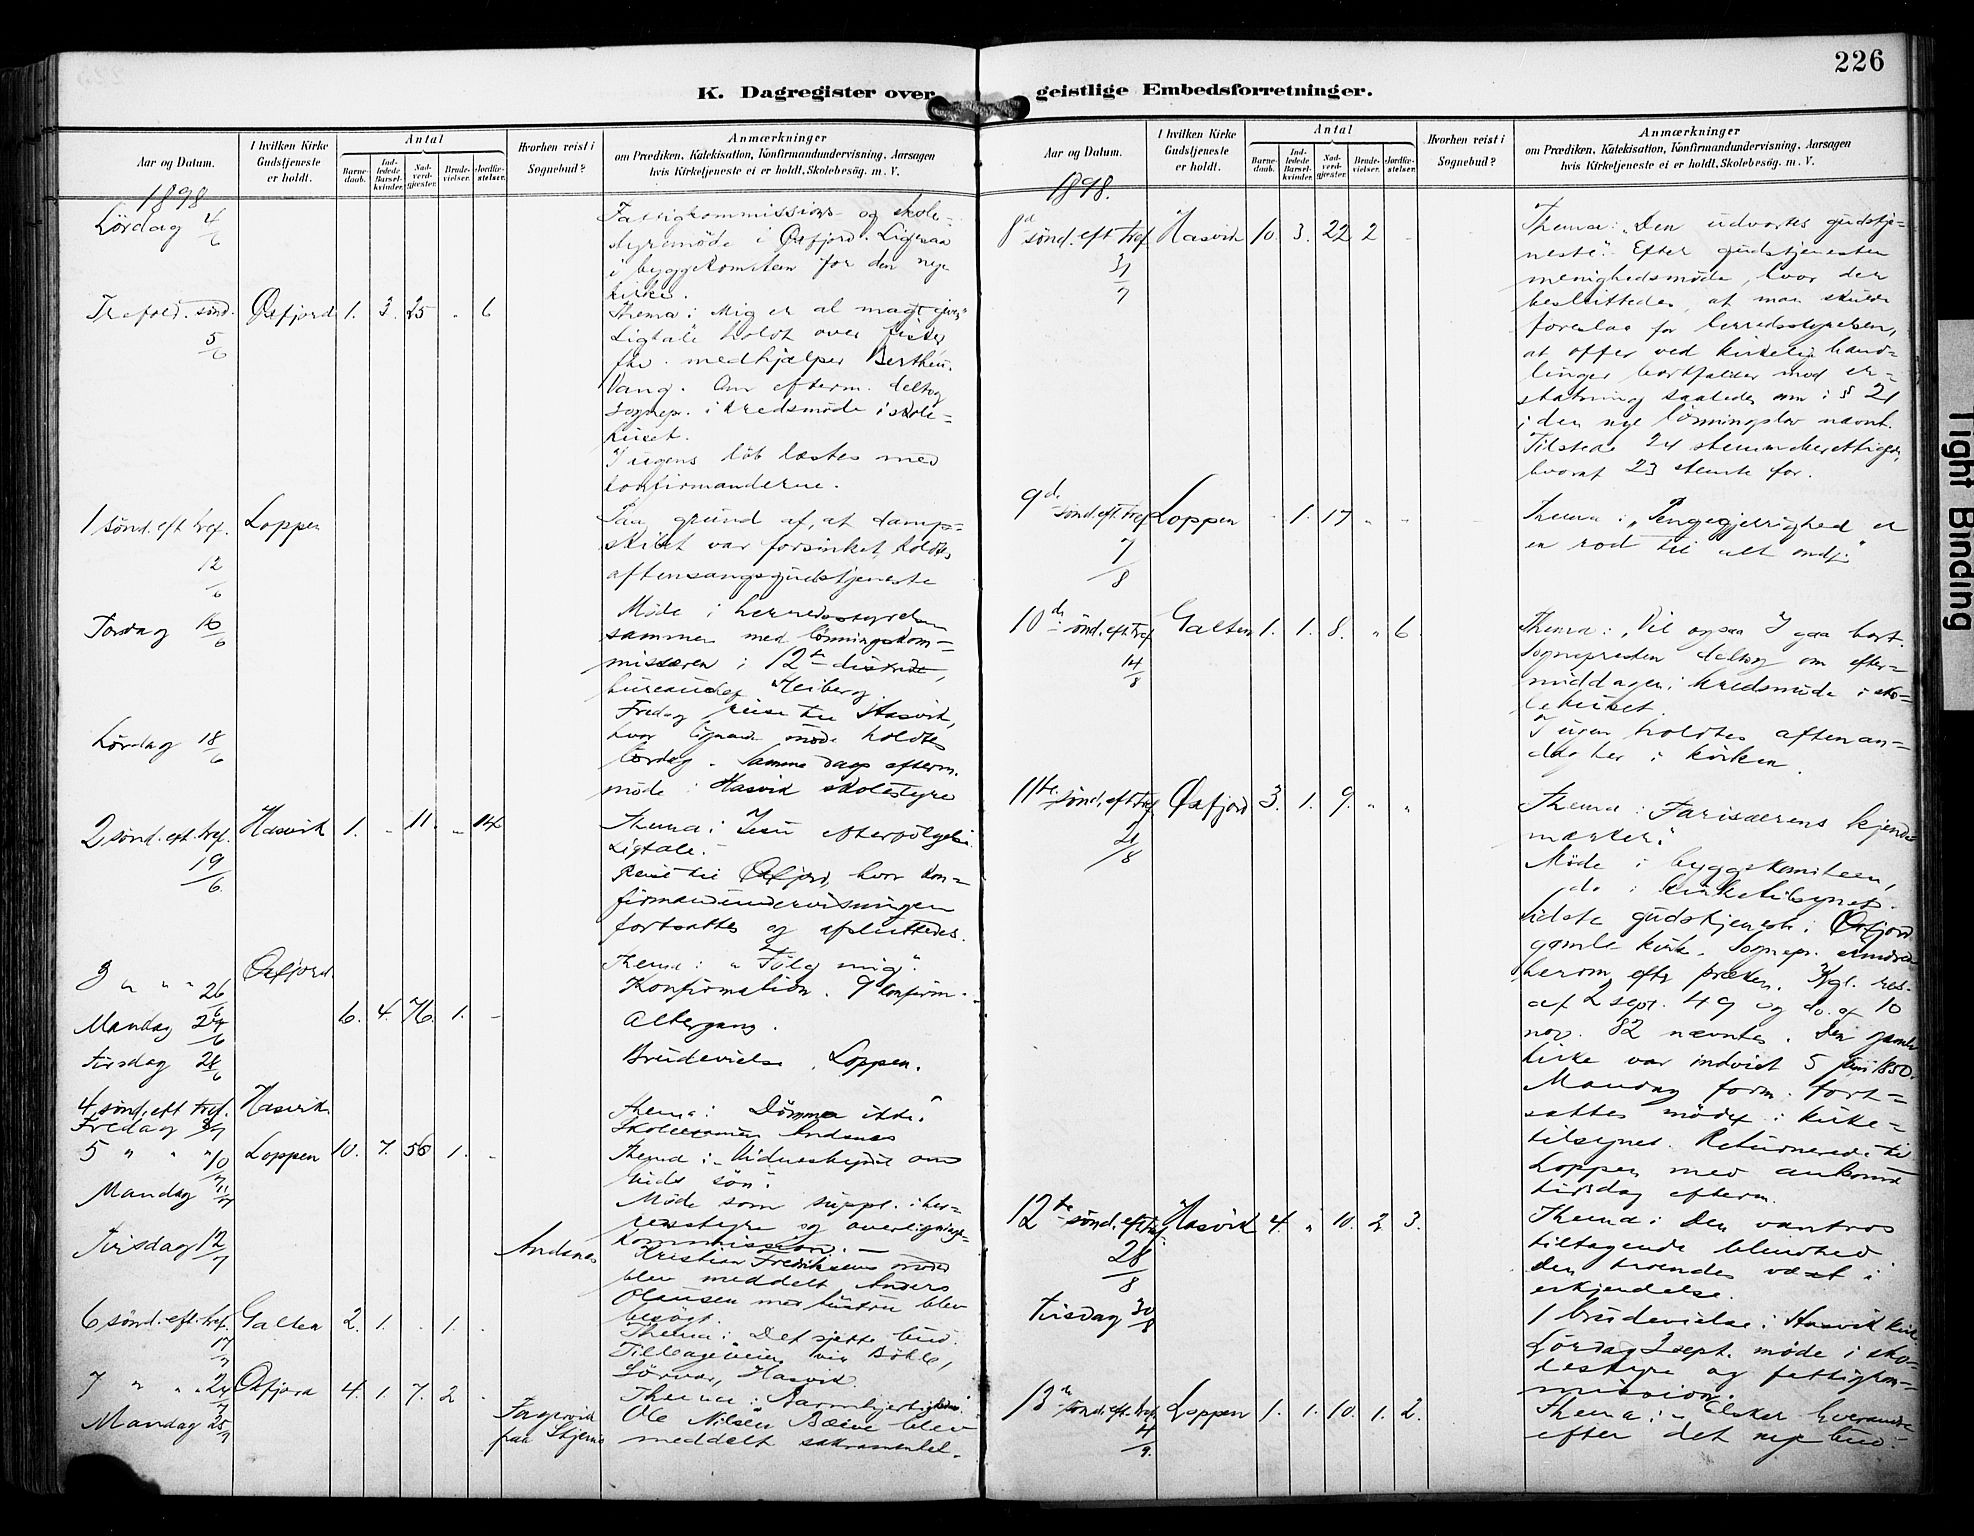 226
K. Dagregister over geistlige Embedsforretninger.
Aar og Datum.
I hvilken Kirke Gudstjeneste er holdt.
Antal
Barnedaab.
Indledede Barselkvinder.
Nadverdgjester.
Brudevielser.
Jordfæstelser.
Hvorhen reist i Sognebud?
Anmærkninger
om Prædiken, Katekisation, Konfirmandundervisning, Aarsagen
hvis Kirketjeneste ei er holdt, Skolebesøg. m. V.
1898
Lördag 4/6
Fattigkommissions- og skole-
styremöde i Öxfjord. Ligesaa
i byggekomiteen for den nye
kirke.
Trefold. sönd. 5/6 Öxfjord 1. 3. 25 " 6
Thema: Mig er al magt given"
Ligtale holdt over
fhv. medhjælper
Vang. Om efterm. deltog
sognepr. i kredsmöde i skole-
huset.
I ugens löb læstes med
konfirmanderne.
1 sönd. eft. tref. 12/6 Loppen
Paa grund af, at damp-
skibet var forsinket, holdtes
aftensangsgudstjeneste
Torsdag 16/6
Möde i herredsstyrelsen
sammen med lönningskom-
missæren i 12te distrikt,
bureauchef Heiberg.
Fredag reise til Hasvik,
Lördag 18/6
hvor lignende möde holdtes
lördag. Samme dags efterm.
möde i Hasvik skolestyre
2 sönd. eft. tref. 19/6 Hasvik 1. " 11. " 14
Thema: Jesu efterfölgelse
Ligtale.
Reiste til Öxfjord, hvor kon-
firmandundervisningen
fortsattes og afsluttedes.
3 " " " 26/6 Öxfjord
Thema: "Fölg mig".
Konfirmation. 9 konfirm.
Mandag 27/6 6. 4. 76. 1. -
Altergang.
Tirsdag 28/6
Brudevielse, Loppen.
4 sönd. eft. tref. Hasvik
Thema: Dömmer ikke"
Fredag
Skoleexamen Andsnes
5 " " " 10/7 Loppen 10. 7. 56 1. -
Thema: Vidnesbyrdet om
Guds sön.
Mandag 11/7
Möde som suppl. i her-
redsstyre og overlignings-
kommission. -
Tirsdag 12/7 Andsnes
Kristian Fredriksens
blev meddelt Anders
Olausen med hustru blev
besögt.
6 sönd. eft. tref. 17/7 Galten 2. 1. . 1. .
Thema: Det sjette bud.
Tilbageveien via Böhle,
Sörvær, Hasvik.
7 " " " 24/7 Öxfjord 4. 1. 7. 2 -
Thema: Barmhjertighed
Mandag 25/7
paa Stjernö
Ole Nilsen blev
meddelt sakramentet.
Aar og Datum.
I hvilken Kirke Gudstjeneste er holdt.
Antal
Barnedaab.
Indledede Barselkvinder.
Nadverdgjester.
Brudevielser.
Jordfæstelser.
Hvorhen reist i Sognebud?
Anmærkninger
om Prædiken, Katekisation, Konfirmandundervisning, Aarsagen
hvis Kirketjeneste ei er holdt, Skolebesög. m. V.
1898.
8d sönd. eft. tref. 31/7 Hasvik 10. 3. 22 2 -
Thema: "Den udvortes gudstje-
neste". Efter gudstjenesten
menighedsmöde, hvor der
besluttedes, at man skulde
foreslaa for herredsstyrelsen,
at offer ved kirkelige hand-
linger bortfalder mod er-
statning saaledes som i § 21
i den nye lönningslov nævnt.
Tilstede 24 stemmeberettigede,
hvoraf 23 stemte for.
9de sönd. eft. tref. 7/8 Loppen - 1. 17 " -
Thema: "Pengegjerrighed er
en rod til alt ondt."
10de sönd. eft. tref. 14/8 Galten 1. 1. 8. " 6.
Thema: "Vil ogsaa I gaa bort.
Sognepresten deltog om efter-
middagen i kredsmöde i sko-
lehuset.
I ugen holdtes aftenan-
dagter i kirken.
11te sönd. eft. tref. 21/8 Öxfjord 3. 1. 9. " "
Thema: Farisæerens kjende-
mærker".
Möde i byggekomiteen,
do i kirketilsynet.
Sidste gudstjeneste i Öxfjord
gamle kirke. Sognepr. erindrede
herom efter præken. Kgl. res.
af 2 sept. 49 og do. af 10
nov. 82 nævntes. Den gamle
kirke var indviet 5 juni 1850.
Mandag form. fort-
sattes mödet i kirke-
tilsynet. Returnerede til
Loppen med ankomst
tirsdag efterm.
12te sönd. eft. tref. 28/8 Hasvik 4. " 10. 2. 3.
Thema: Den vantros
tiltagende blindhed
den troendes vext i
erkjendelse.
Tirsdag 30/8
1 brudevielse i Hasvik kirke
Lördag 3 sept. möde i sko-
lestyre og fattigkom-
mission.
13de sönd. eft. tref. 4/9. Loppen 1. 1. 10. 1. 2.
Thema: "Elsker hverandre
efter det nye bud."
Tight Binding